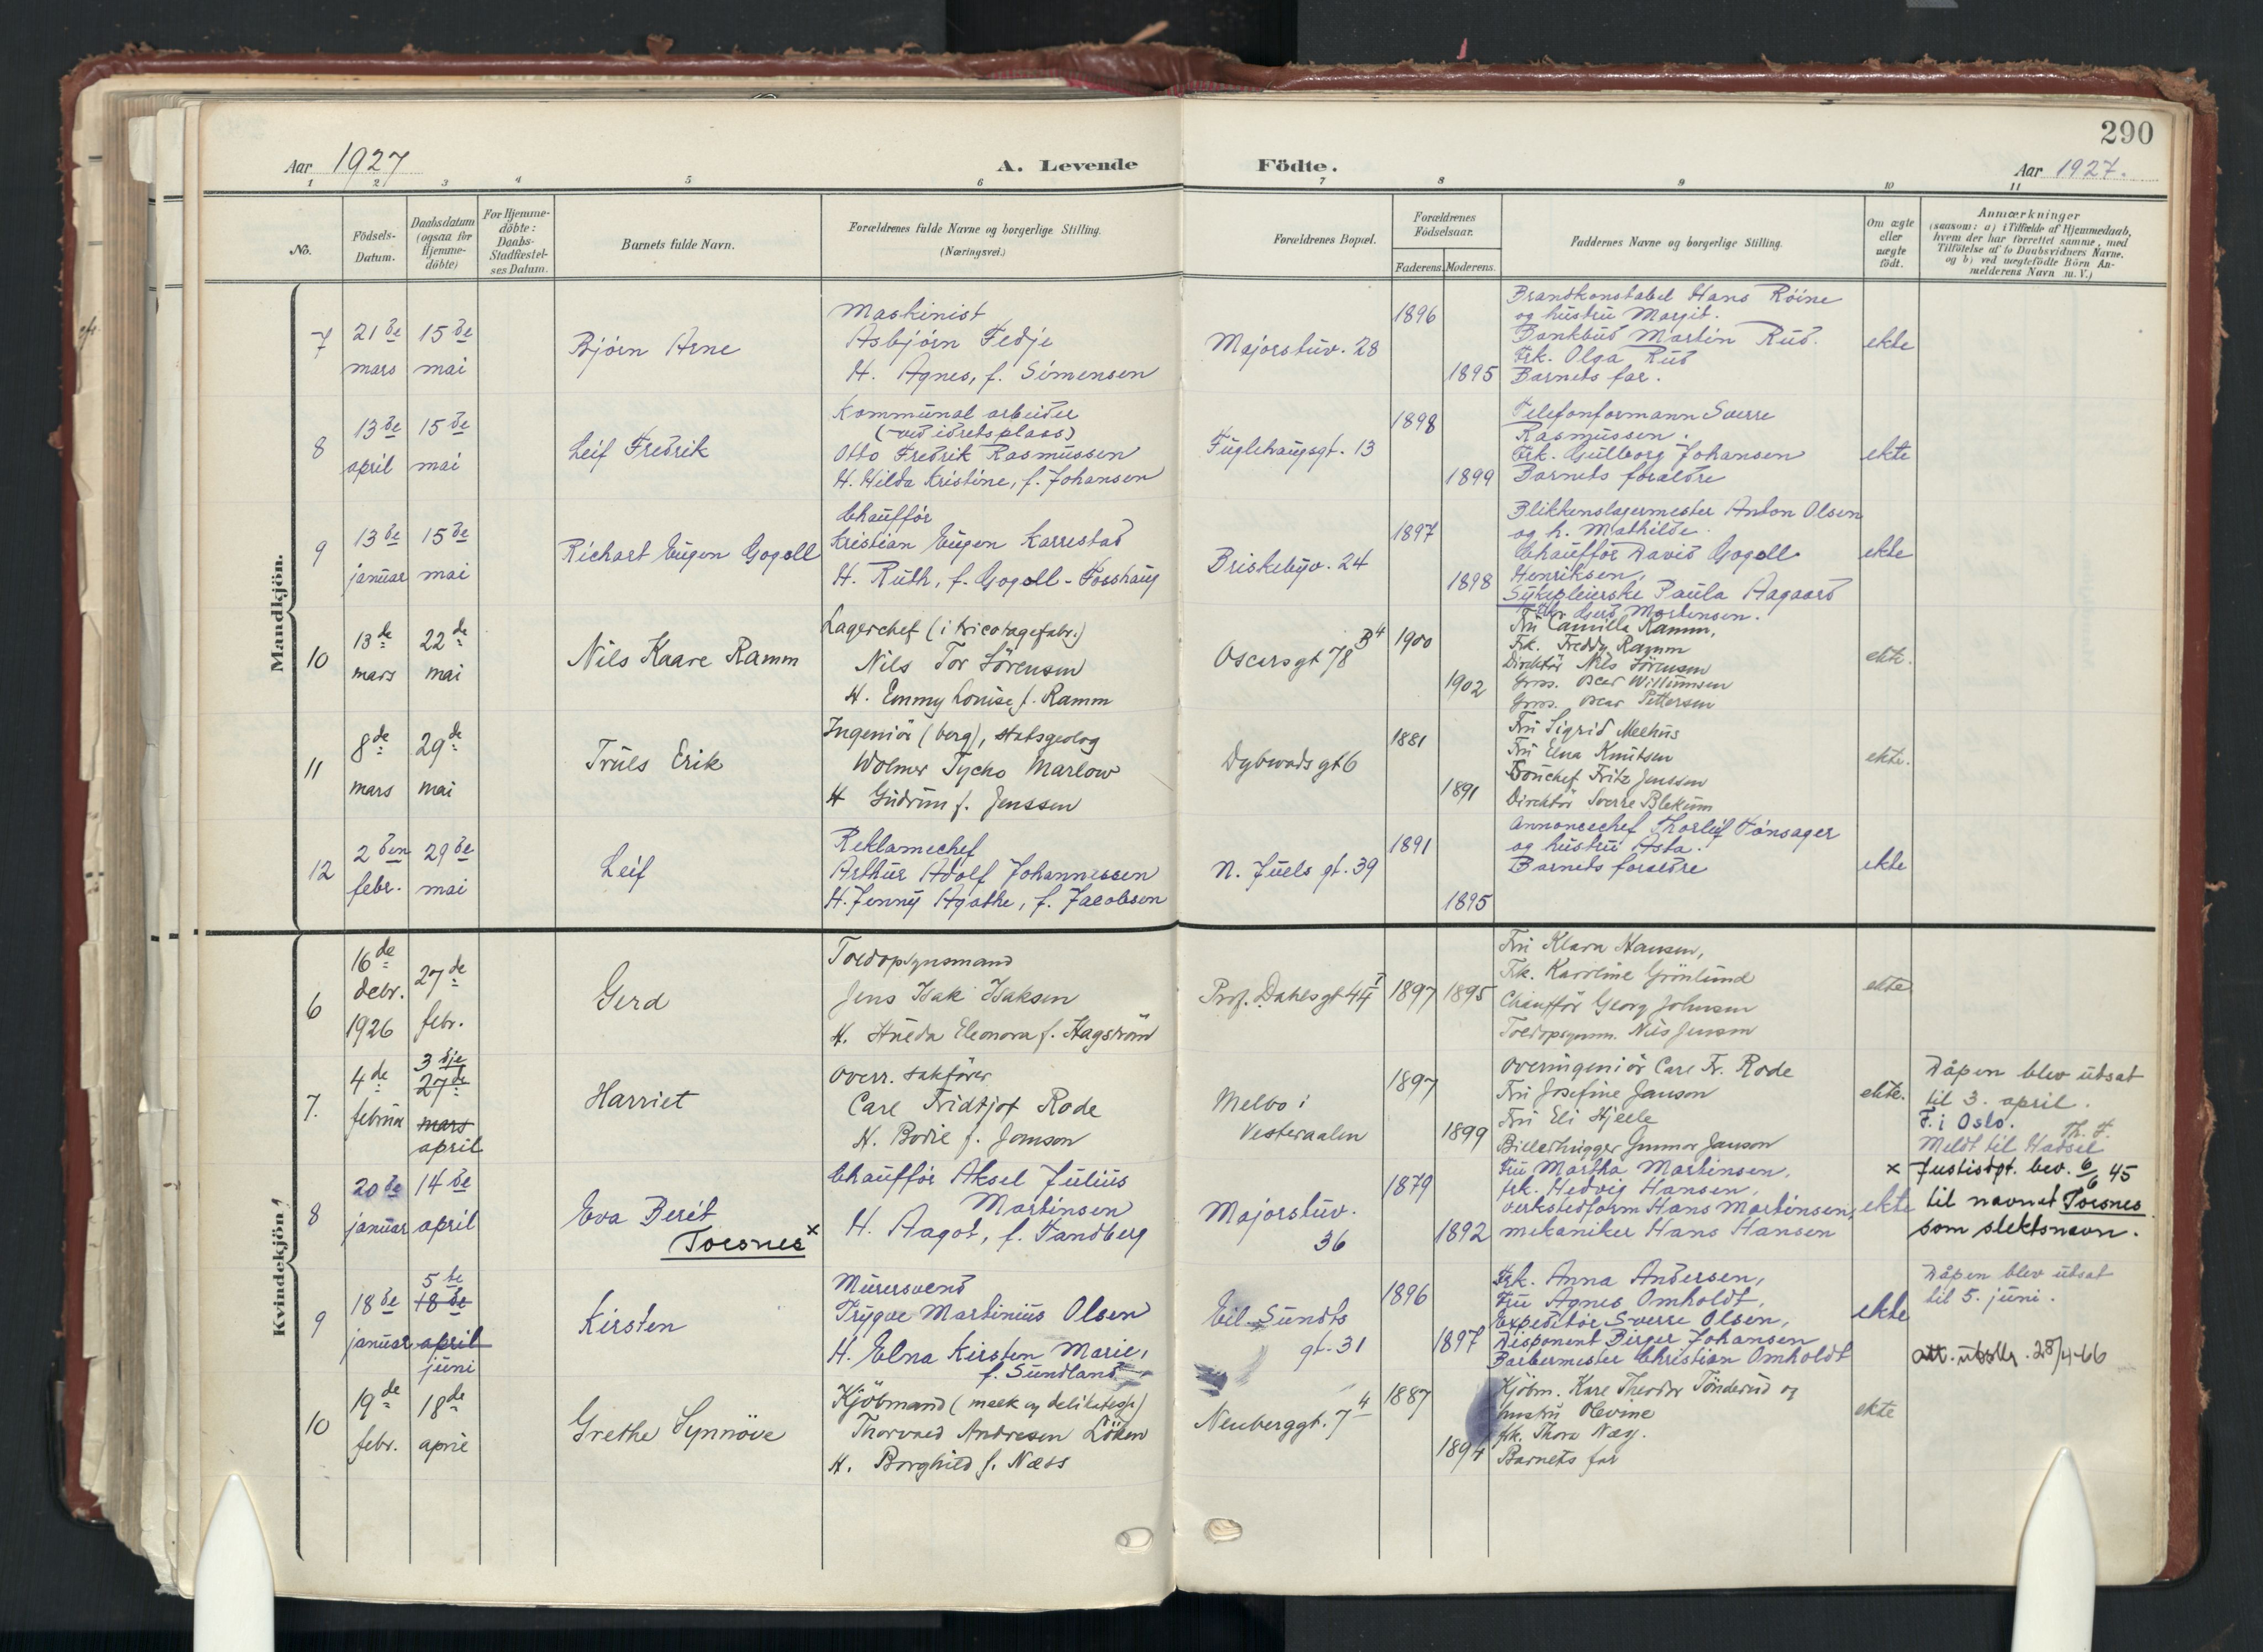 290
Aar 1927
A. Levende Födte.
Aar 1927.
1 2 3 4 5 6 7 8 9 10 11
No.
Födsels-Datum.
Daabsdatum (ogsaa for Hjemme-döbte)
For Hjemme-döbte: Daabs-Stadfæstel-ses Datum.
Barnets fulde Navn.
Forældrenes fulde Navne og borgerlige Stilling.
(Næringsvei.)
Forældrenes Bopæl.
Forældrenes Födselsaar.
Faderens. Moderens.
Faddernes Navne og borgerlige Stilling.
Om ægte eller uægte födt.
Anmærkninger
(saasom: a) i Tilfælde af Hjemmedaab,
hvem der har forrettet samme, med
Tilföielse af to Daabsvidners Navne.
og b) ved uægtefödte Börn An-
melderens Navn m. V.)
Mandkjön.
7
21de mars
15de mai
Bjørn Arne
Maskinist
Asbjørn Fedje
H. Agnes, f. Simensen
Majorstuv. 28
1896
1895
Brandkonstabel Hans Röine
og hustru Margit.
Bankbud Martin Rud.
Frk. Olga Rud
Barnets far.
ekte
8
13de april
15de mai
Leif Fredrik
Kommunal arbeider
(ved idretsplass)
Otto Fredrik Rasmussen
H. Hilda Kristine, f. Johansen
Fuglehaugsgt. 13
1898
1899
Telefonformann Sverre
Rasmussen.
Frk. Gulborg Johansen
Barnets foraldre
ekte
9
13de januar
15de mai
Richart Eugen Gogoll
Chauffør
Kristian Eugen Karrestad
H. Ruth, f. Gogoll-Fosshaug
Briskebyv. 24
1897
1898
Blikkenslagermester Anton Olsen
og h. Mathilde.
Chauffør David Gogoll
Henriksen,
Sykepleierske Paula Aagaard
Frk. Gerd Mortensen.
ekte
10
13de mars
22de mai
Nils Kaare Ramm
Lagerchef (i tricotagefabr.)
Nils Tor Sörensen
H. Emmy Louise f. Ramm
Oscarsgt 78 B4
1900
1902
Fru Camilla Ramm,
Frk. Freddy Ramm
Direktör Nils Sörensen
Gross. Oscar Willumsen
Gross. Oscar Pettersen
ekte.
11
8de mars
29de mai
Truls Erik
Ingeniör (berg), statsgeolog
Wolmer Tycho Marlow
H Gudrun f. Jenssen
Dybwadsgt 6
1881
1891
Fru Sigrid Meehus
Fru Elna Knutsen
Fritz Jenssen
Direktör Sverre Blekum
ekte.
12
2den febr.
29de mai
Leif
Reklamechef
Arthur Adolf Johannessen
H. Jenny Agathe, f. Jacobsen
N. Juels gt. 39
1891
1895
Annoncechef Thorleif Tønsager
og hustru Asta.
Barnets foraldre
ekte
Kvindekjön
6
16de debr. 1926
27de febr.
Gerd
Toldopsynsmand
Jens Isak Isaksen
H. Hulda Eleonora f. Hagström
Prof. Dahlsgt 44 I
1897
1895
Fru Klara Hansen,
Frk. Karoline Grönlund
Chauffør Georg Johnsen
Toldopsynsm. Nils Jensen
ekte
7.
4de februar
3dje 27de
mars
april
Harriet
Overr. sakfører
Carl Fridtjof Rode
H. Bodil f. Janson
Melbo i
Vesteraalen
1897
1899
Overingeniör Carl Fr. Rode
Fru Josefine Janson
Fru Eli Hjelle
Billedhugger Gunnar Janson
ekte.
Dåpen blev utsat
til 3. april.
F. i Oslo. Th. F.
Meldt til Hadsel
8
20de januar
14de april
Eva Berit
Torsnes x
Chauffør Aksel Julius
Martinsen
H. Aagot, f. Sandberg
Majorstuv.
36
1879
1892
Fru Martha Martinsen,
frk. Hedvig Hansen,
verkstedform. Hans Martinsen,
mekaniker Hans Hansen
ekte
x Justisdpt. bev. 6/6 45
til navnet Torsnes
som slektsnavn.
9
18de januar
5te
18de
april
juni
Kirsten
Murersvend
Trygve Martinius Olsen
H. Elna Kirsten Marie,
f. Sundland
Eil. Sundts
gt. 31
1896
1897
Frk. Anna Andersen,
Fru Agnes Omholdt,
Expeditør Sverre Olsen,
Disponent Birger Johansen
Barbermester Christian Omholdt
ekte
Dåpen blev utsat
til 5. juni.
att. utstr. 28/4-66
10
19de febr.
18de april
Grethe Synnöve
Kjöbmand (melk og delikatesse)
Thorvald Andresen Löken
H. Borghild f. Næss
Neuberggt. 7 4
1887
1894
Kjöbm. Karl Theodor Tönderud og
hustru Olevine
frk. Thora Næss.
Barnets far
ekte